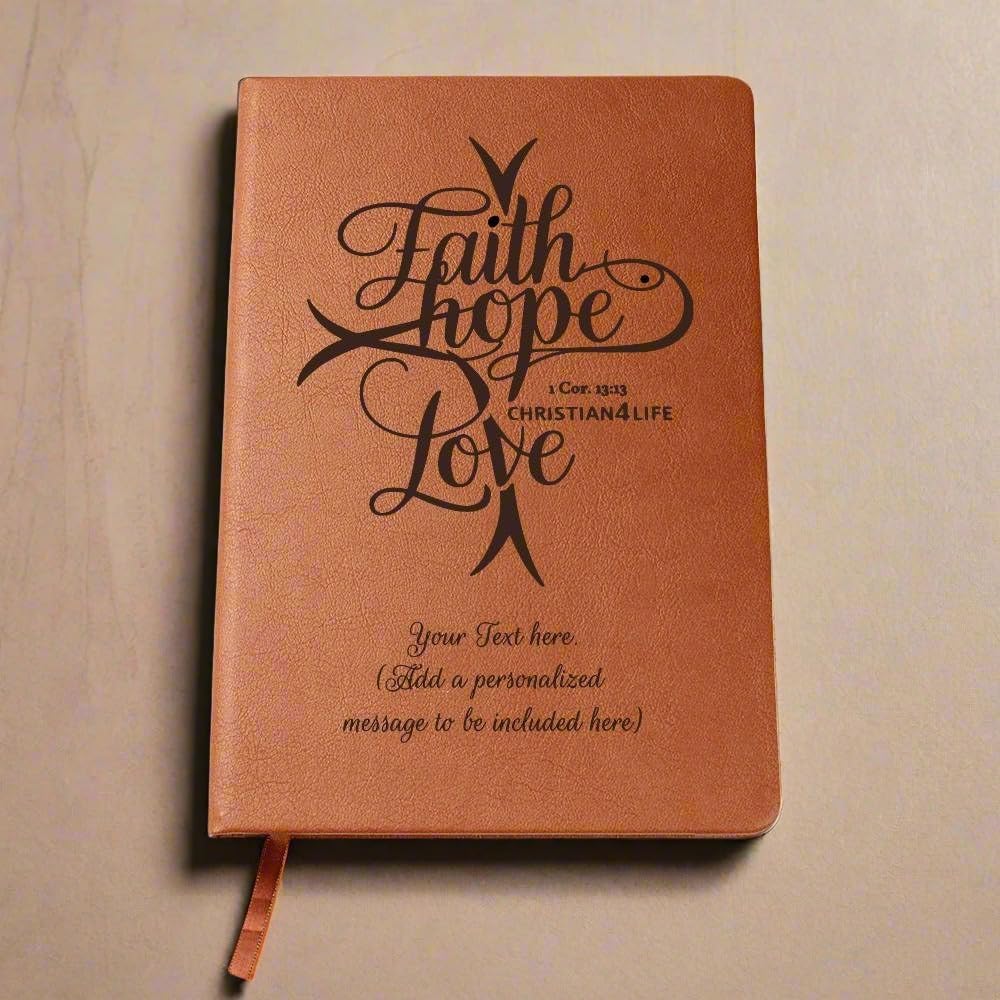 Faith
hope
1 Cor. 13:13
CHRISTIAN4LIFE
Love
Your Text here.
(Add a personalized
message to be included here)